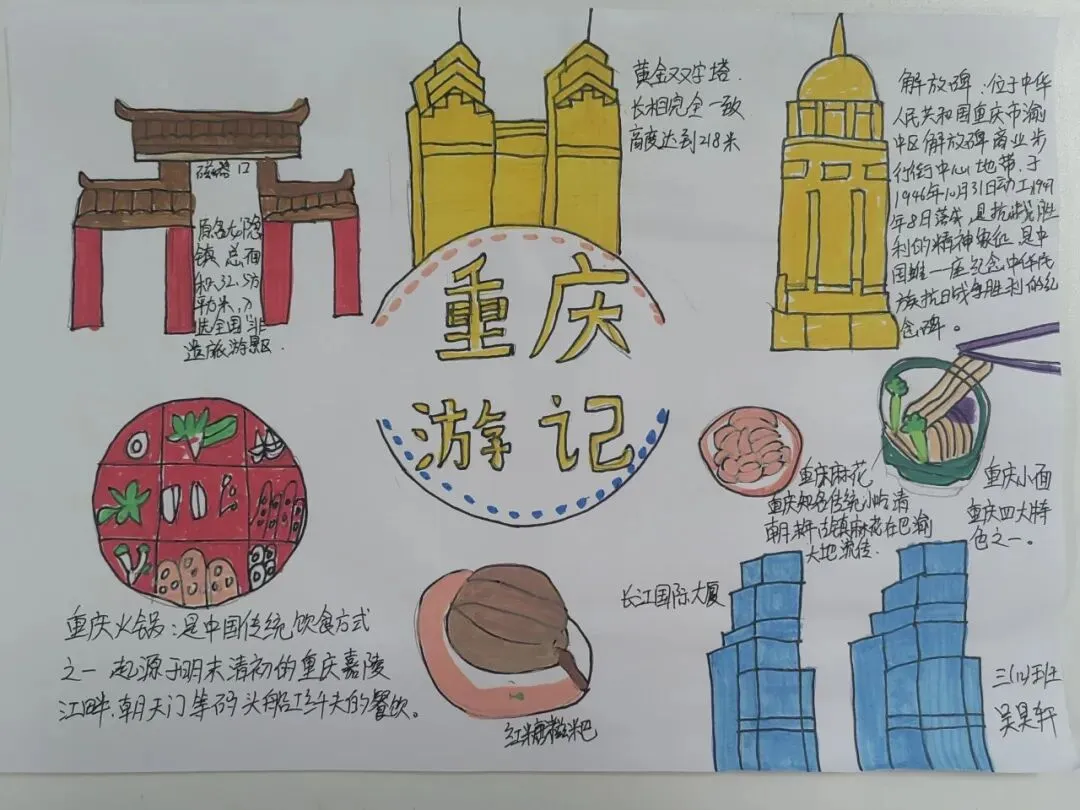 磁器口
原名龙隐
镇 总面
积32.5万
平方米,入
选全国非
造旅游景区.
黄金双子塔.
长相完全一致
高度达到218米
解放碑:位于中华
人民共和国重庆市渝
中区解放碑商业步
行街中心地带,于
1946年10月31日动工1947
年8日落央,是抗战胜
利的精神象征,是中
国唯一座纪念中华民
族抗日战争胜利的纪
念碑。
重庆
游记
重庆火锅:是中国传统饮食方式
之一 起源于明末清初的重庆嘉陵
江畔,朝天门等码头船工纤夫的餐饮。
红糖糍粑
重庆麻花
重庆知名传统小吃清
朝末年古镇麻花在巴渝
大地流传.
重庆小面
重庆四大特
色之一。
长江国际大厦
三(12)班
吴昊轩